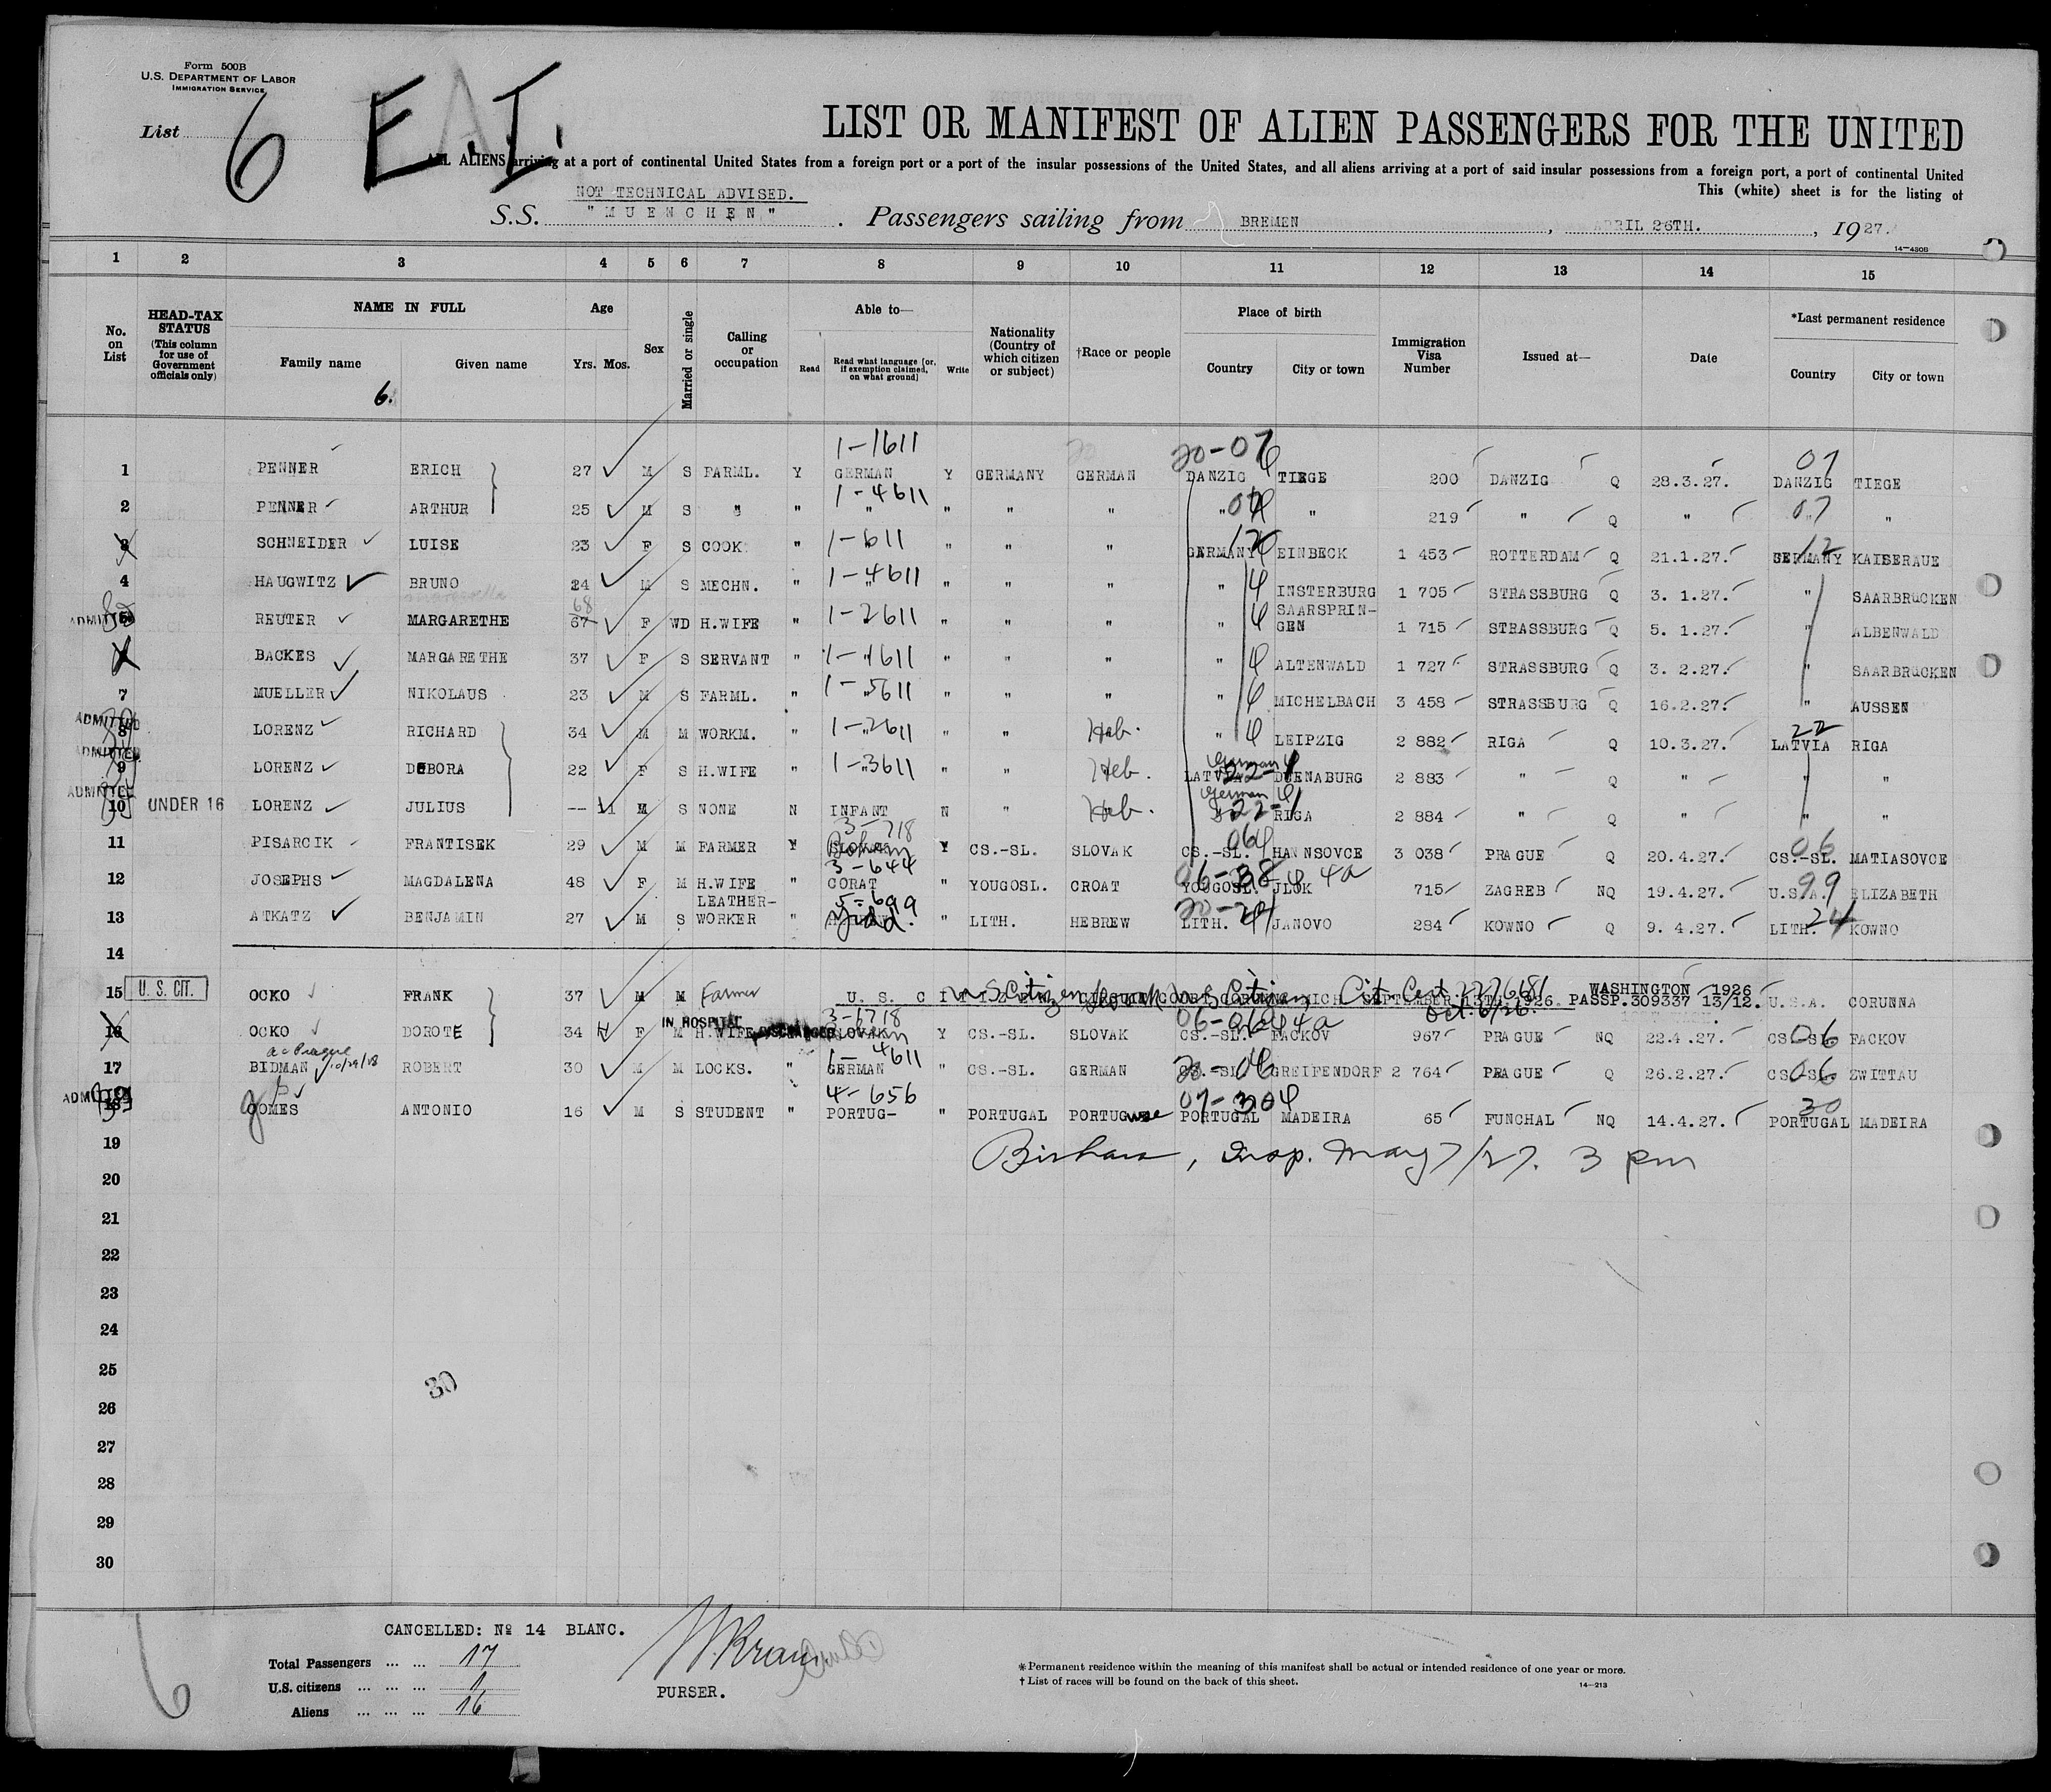 Form 500B
U.S. DEPARTMENT OF LABOR
IMMIGRATION SERVICE
List 6 E.I.
LIST OR MANIFEST OF ALIEN PASSENGERS FOR THE UNITED
ALL ALIENS arriving at a port of continental United States from a foreign port or a port of the insular possessions of the United States, and all aliens arriving at a port of said insular possessions from a foreign port, a port of continental United
This (white) sheet is for the listing of
NOT TECHNICAL ADVISED.
S.S. "MUENCHEN". Passengers sailing from BREMEN, APRIL 26TH., 1927.
14—430B
1 2 3 4 5 6 7 8 9 10 11 12 13 14 15
No. on List HEAD-TAX STATUS (This column for use of Government officials only) NAME IN FULL Family name Given name Age Yrs. Mos. Sex Married or single Calling or occupation Able to— Read Read what language [or, if exemption claimed, on what ground] Write Nationality (Country of which citizen or subject) †Race or people Place of birth Country City or town Immigration Visa Number Issued at— Date *Last permanent residence Country City or town
6.
1-1611 20-07 07
1 PENNER ERICH 27 M S FARML. Y GERMAN Y GERMANY GERMAN DANZIG TIEGE 200 DANZIG Q 28.3.27. DANZIG TIEGE
1-4611
2 PENNER ARTHUR 25 M S " " " " " " " " 219 " Q " 07 "
3 SCHNEIDER LUISE 23 F S COOK " 1-611 " " " GERMANY 12 EINBECK 1 453 ROTTERDAM Q 21.1.27. GERMANY 12 KAISERAUE
4 HAUGWITZ BRUNO 24 M S MECHN. " 1-4611 " " " " INSTERBURG 1 705 STRASSBURG Q 3. 1.27. " SAARBRUCKEN
ADMITTED 5 REUTER MARGARETHE 68 67 F WD H.WIFE " 1-2611 " " " " SAARSPRIN-GEN 1 715 STRASSBURG Q 5. 1.27. " ALBENWALD
BACKES MARGARETHE 37 F S SERVANT " 1-1611 " " " " ALTENWALD 1 727 STRASSBURG Q 3. 2.27. " SAARBRUCKEN
7 MUELLER NIKOLAUS 23 M S FARML. " 1-5611 " " " " MICHELBACH 3 458 STRASSBURG Q 16.2.27. " AUSSEN
ADMITTED 8 LORENZ RICHARD 34 M M WORKM. " 1-2611 " " Heb. " LEIPZIG 2 882 RIGA Q 10.3.27. LATVIA 22 RIGA
ADMITTED 9 LORENZ DEBORA 22 F S H.WIFE " 1-3611 " " Heb. German LATVIA 22-1 DUENABURG 2 883 " Q " " "
ADMITTED 10 UNDER 16 LORENZ JULIUS -- 11 M S NONE N INFANT N " Heb. German 22-1 RIGA 2 884 " Q " " "
3-718
11 PISARCIK FRANTISEK 29 M M FARMER Y Y CS.-SL. SLOVAK CS.-SL. HANNSOVCE 3 038 PRAGUE Q 20.4.27. CS.-SL. 06 MATIASOVCE
3-644
12 JOSEPHS MAGDALENA 48 F M H.WIFE " CORAT " YOUGOSL. CROAT YOUGOSL. JLOK 4a 715 ZAGREB NQ 19.4.27. U.S.A. 99 ELIZABETH
5-699
13 ATKATZ BENJAMIN 27 M S LEATHER-WORKER " Yidd. " LITH. HEBREW LITH. JANOVO 284 KOWNO Q 9. 4.27. LITH. 24 KOWNO
14
15 U. S. CIT. OCKO FRANK 37 M M Farmer U. S. CITIZEN CIRCUIT COURT CORUNNA MICH. SEPTEMBER 13TH. 1926. PASSP.309337 WASHINGTON 1926 13/12. U.S.A. CORUNNA
U S Citizen Cit. Cert 2276181 Oct. 6/26.
3-1718 06-06 4a
16 OCKO DOROTE 34 F M IN HOSPITAL H.WIFE DISCHARGED SLOVAK Y CS.-SL. SLOVAK CS.-SL. FACKOV 967 PRAGUE NQ 22.4.27. CS.-SL. 06 FACKOV
1-4611
17 BIDMAN 10/29/28 ROBERT 30 M M LOCKS. " GERMAN " CS.-SL. GERMAN CS.-SL. GREIFENDORF 2 764 PRAGUE Q 26.2.27. CS.-SL. 06 ZWITTAU
4-656 07-30
ADMITTED 18 GOMES ANTONIO 16 M S STUDENT " PORTUG- " PORTUGAL PORTUGuese PORTUGAL MADEIRA 65 FUNCHAL NQ 14.4.27. PORTUGAL 30 MADEIRA
19 Insp. May 7/27. 3 pm
20
21
22
23
24
25
30
26
27
28
29
30
CANCELLED: Nº 14 BLANC.
Total Passengers ... ... 17
U.S. citizens ... ... ... 1
Aliens ... ... ... 16
6
PURSER.
* Permanent residence within the meaning of this manifest shall be actual or intended residence of one year or more.
† List of races will be found on the back of this sheet.
14—213